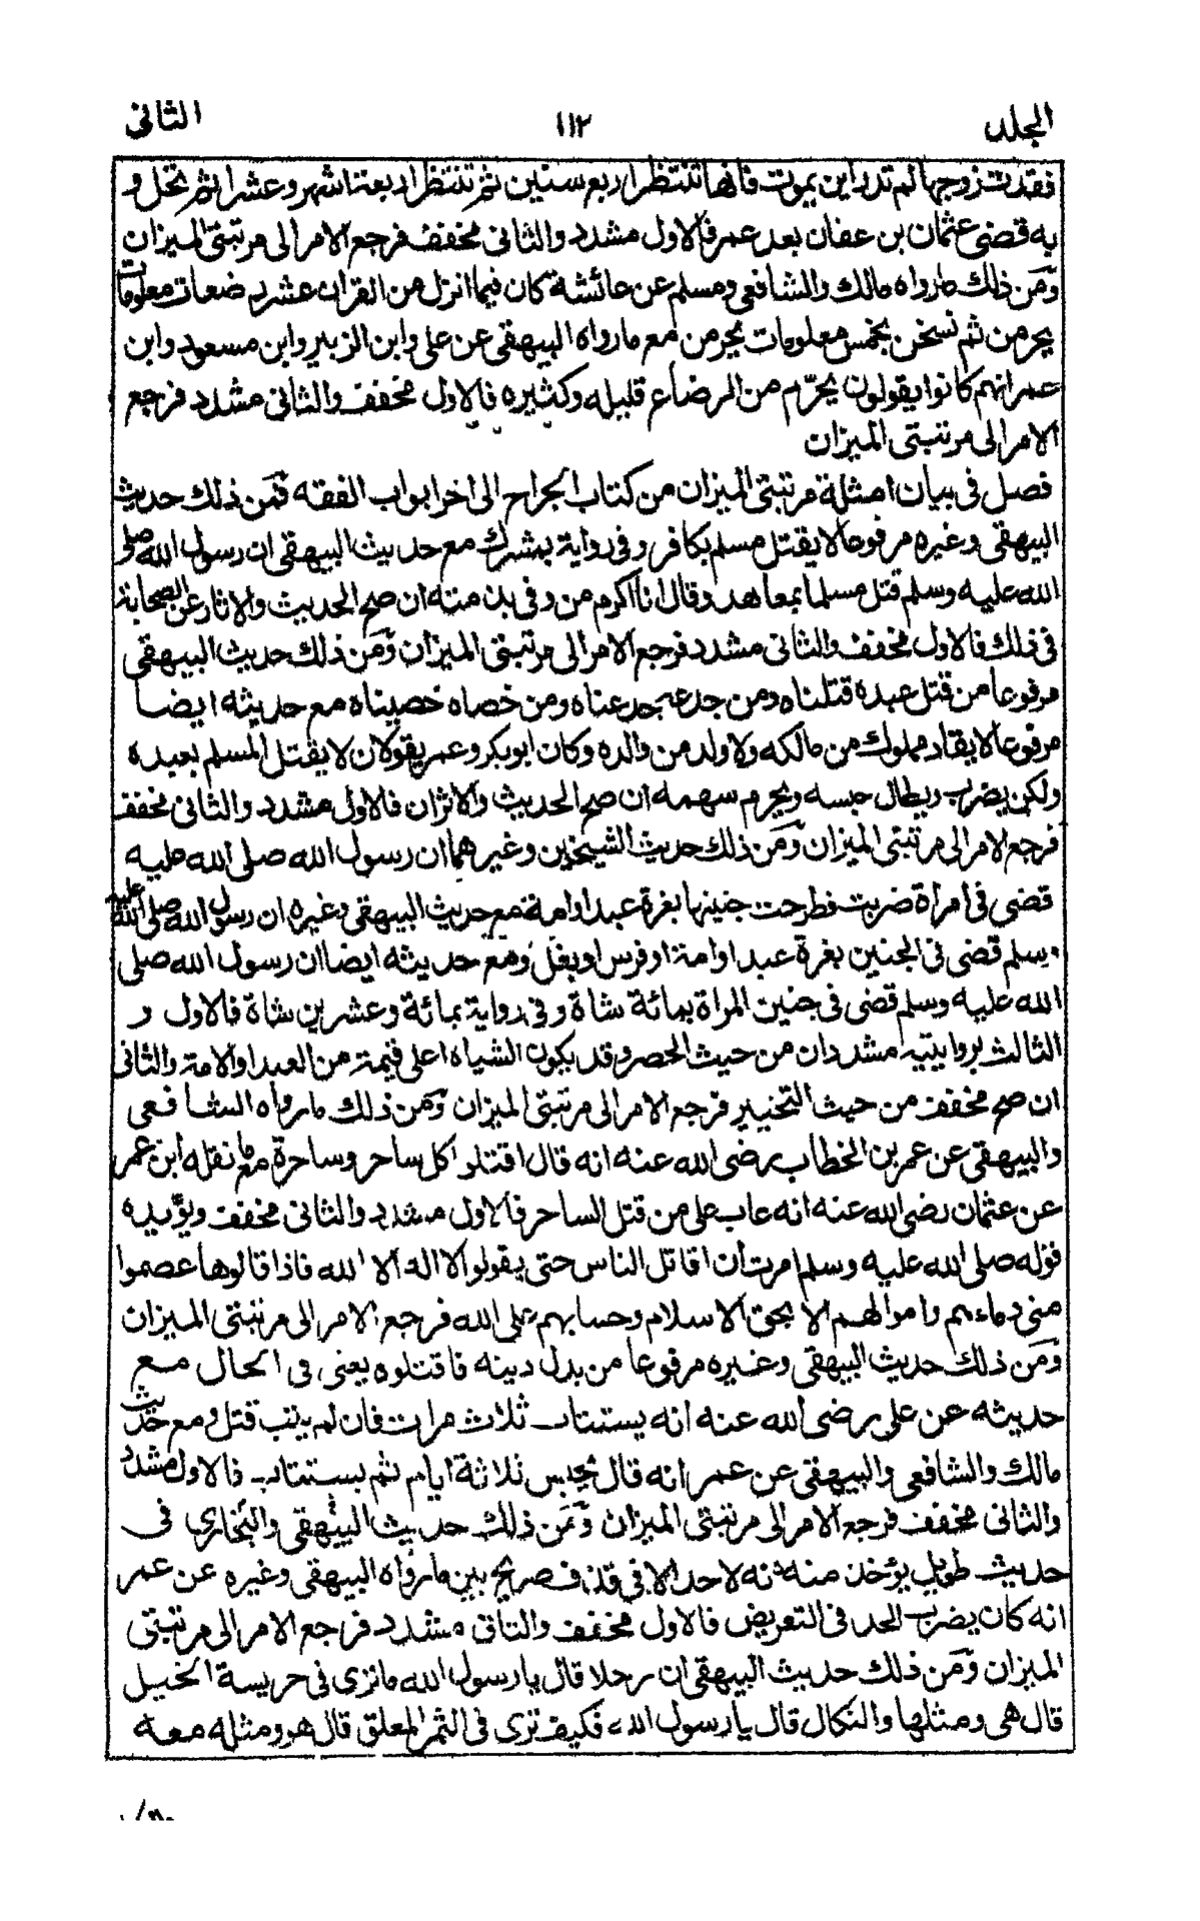 المجلد ١١٢ الثانی
فقدت زوجها لم تدر این یموت فانها تنتظر اربع سنین ثم تنتظر اربعة اشهر وعشرا ثم تحل و
به قضی عثمان بن عفان بعد عمر فالاول مشدد والثانی مخفف فرجع الامر الی مرتبتی المیزان
ومن ذلك ما رواه مالك والشافعی ومسلم عن عائشة کان فیما انزل من القران عشر رضعات معلومات
یحرمن ثم نسخن بخمس معلومات یحرمن مع ما رواه البیهقی عن علی وابن الزبیر وابن مسعود وابن
عمر انهم کانوا یقولون یحرّم من الرضاع قلیله وکثیره فالاول مخفف والثانی مشدد فرجع
الامر الی مرتبتی المیزان
فصل فی بیان امثلة مرتبتی المیزان من کتاب الجراح الی اخر ابواب الفقه فمن ذلك حدیث
البیهقی وغیره مرفوعا لا یقتل مسلم بکافر وفی روایة بمشرك مع حدیث البیهقی ان رسول الله صلی
الله علیه وسلم قتل مسلما بمعاهد وقال انا اکرم من وفی بذمته ان صح الحدیث والاثار عن الصحابة
فی ذلك فالاول مخفف والثانی مشدد فرجع الامر الی مرتبتی المیزان ومن ذلك حدیث البیهقی
مرفوعا من قتل عبده قتلناه ومن جدعه جدعناه ومن خصاه خصیناه مع حدیثه ایضا
مرفوعا لا یقاد مملوك من مالکه ولا ولد من والده وکان ابوبکر وعمر یقولان لا یقتل المسلم بعبده
ولکن یضرب ویطال حبسه ویحرم سهمه ان صح الحدیث والاثران فالاول مشدد والثانی مخفف
فرجع الامر الی مرتبتی المیزان ومن ذلك حدیث الشیخین وغیرهما ان رسول الله صلی الله علیه
قضی فی امرأة ضربت فطرحت جنینها بغرة عبد او امة مع حدیث البیهقی وغیره ان رسول الله صلی الله علیه
وسلم قضی فی الجنین بغرة عبد او امة او فرس او بغل ومع حدیثه ایضا ان رسول الله صلی
الله علیه وسلم قضی فی جنین المرأة بمائة شاة وفی روایة بمائة وعشرین شاة فالاول و
الثالث بروایتیه مشددان من حیث الحصر وقد یکون الشیاه اعلی قیمة من العبد والامة والثانی
ان صح مخفف من حیث التخییر فرجع الامر الی مرتبتی المیزان ومن ذلك ما رواه الشافعی
والبیهقی عن عمر بن الخطاب رضی الله عنه انه قال اقتلوا کل ساحر وساحرة مع ما نقله ابن عمر
عن عثمان رضی الله عنه انه عاب علی من قتل الساحر فالاول مشدد والثانی مخفف ویؤیده
قوله صلی الله علیه وسلم امرت أن اقاتل الناس حتی یقولوا لا اله الا الله فاذا قالوها عصموا
منی دماءهم واموالهم الا بحق الاسلام وحسابهم علی الله فرجع الامر الی مرتبتی المیزان
ومن ذلك حدیث البیهقی وغیره مرفوعا من بدل دینه فاقتلوه یعنی فی الحال مع
حدیثه عن علی رضی الله عنه انه یستتاب ثلاث مرات فان لم یتب قتل ومع حدیث
مالك والشافعی والبیهقی عن عمر انه قال یحبس ثلاثة ایام ثم یستتاب فالاول مشدد
والثانی مخفف فرجع الامر الی مرتبتی المیزان ومن ذلك حدیث البیهقی والبخاری فی
حدیث طویل یؤخذ منه انه لا حد الا فی قذف صریح بین ما رواه البیهقی وغیره عن عمر
انه کان یضرب الحد فی التعریض فالاول مخفف والثانی مشدد فرجع الامر الی مرتبتی
المیزان ومن ذلك حدیث البیهقی ان رجلا قال یا رسول الله ما تری فی حریسة الخیل
قال هی ومثلها والنکال قال یا رسول الله فکیف تری فی الثمر المعلق قال هو ومثله معه